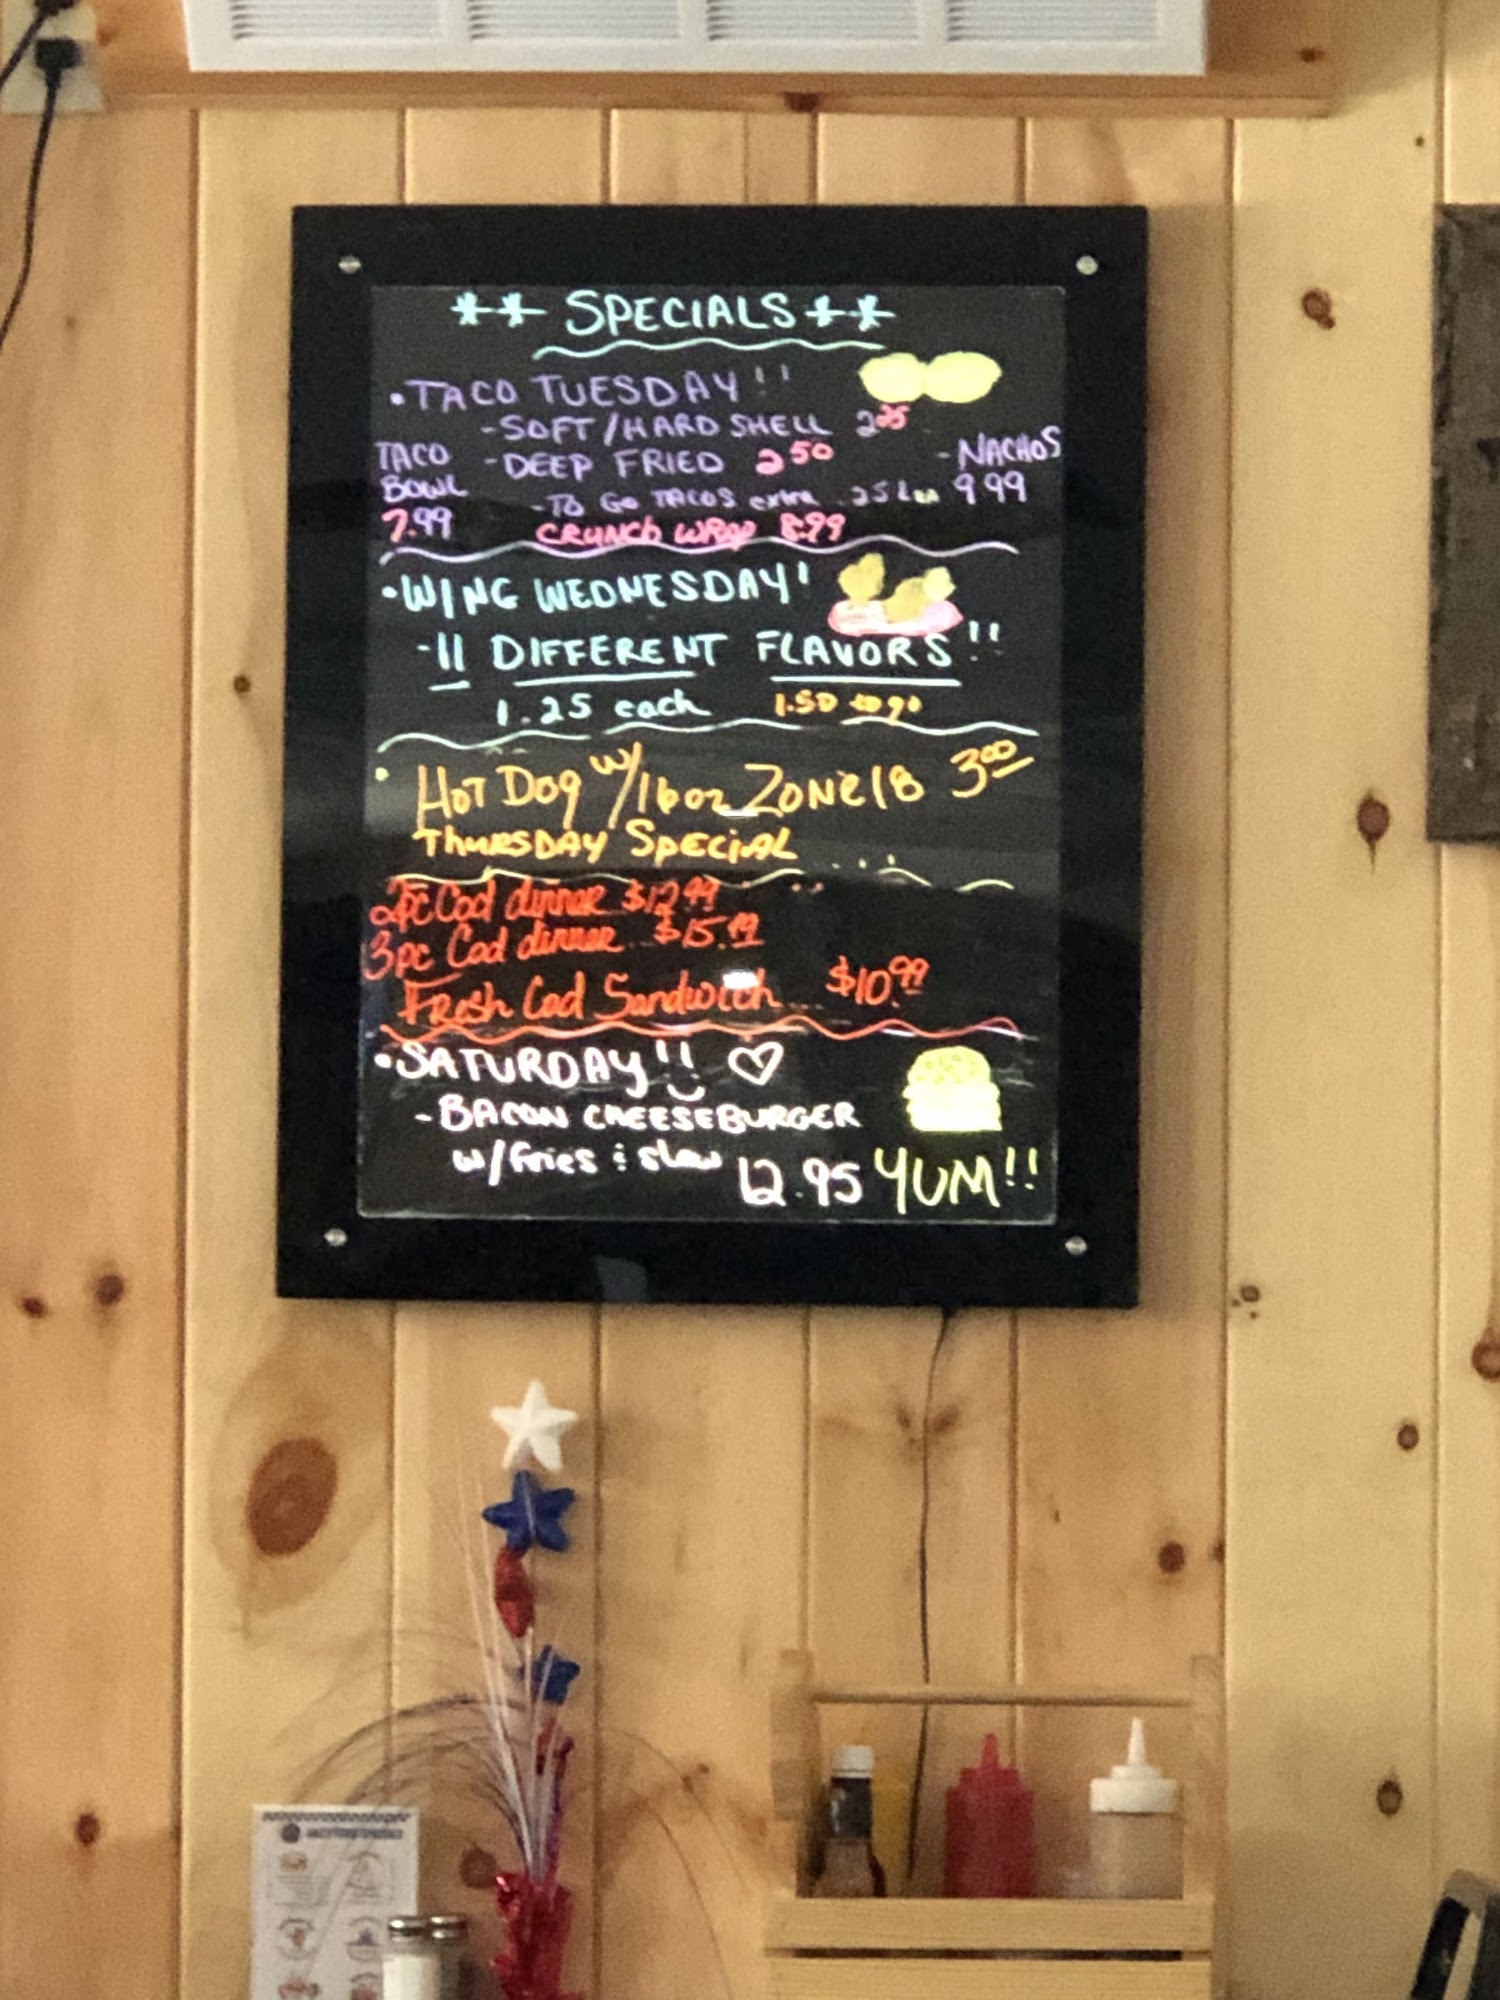 ** SPECIALS **
• TACO TUESDAY!!
- SOFT/HARD SHELL 2.25
TACO BOWL 7.99
- DEEP FRIED 2 50
- NACHOS 9.99
- TO GO TACOS extra .25 ea
CRUNCH WRAP 8.99
• WING WEDNESDAY!
- 11 DIFFERENT FLAVORS!!
1.25 each 1.50 to go
• HOT DOG w/16oz ZONE 18 3.00
THURSDAY SPECIAL
2pc Cod dinner $12.99
3pc Cod dinner $15.99
FRESH Cod Sandwich $10.99
• SATURDAY!!
- BACON CHEESEBURGER
w/fries & slaw 12.95 YUM!!